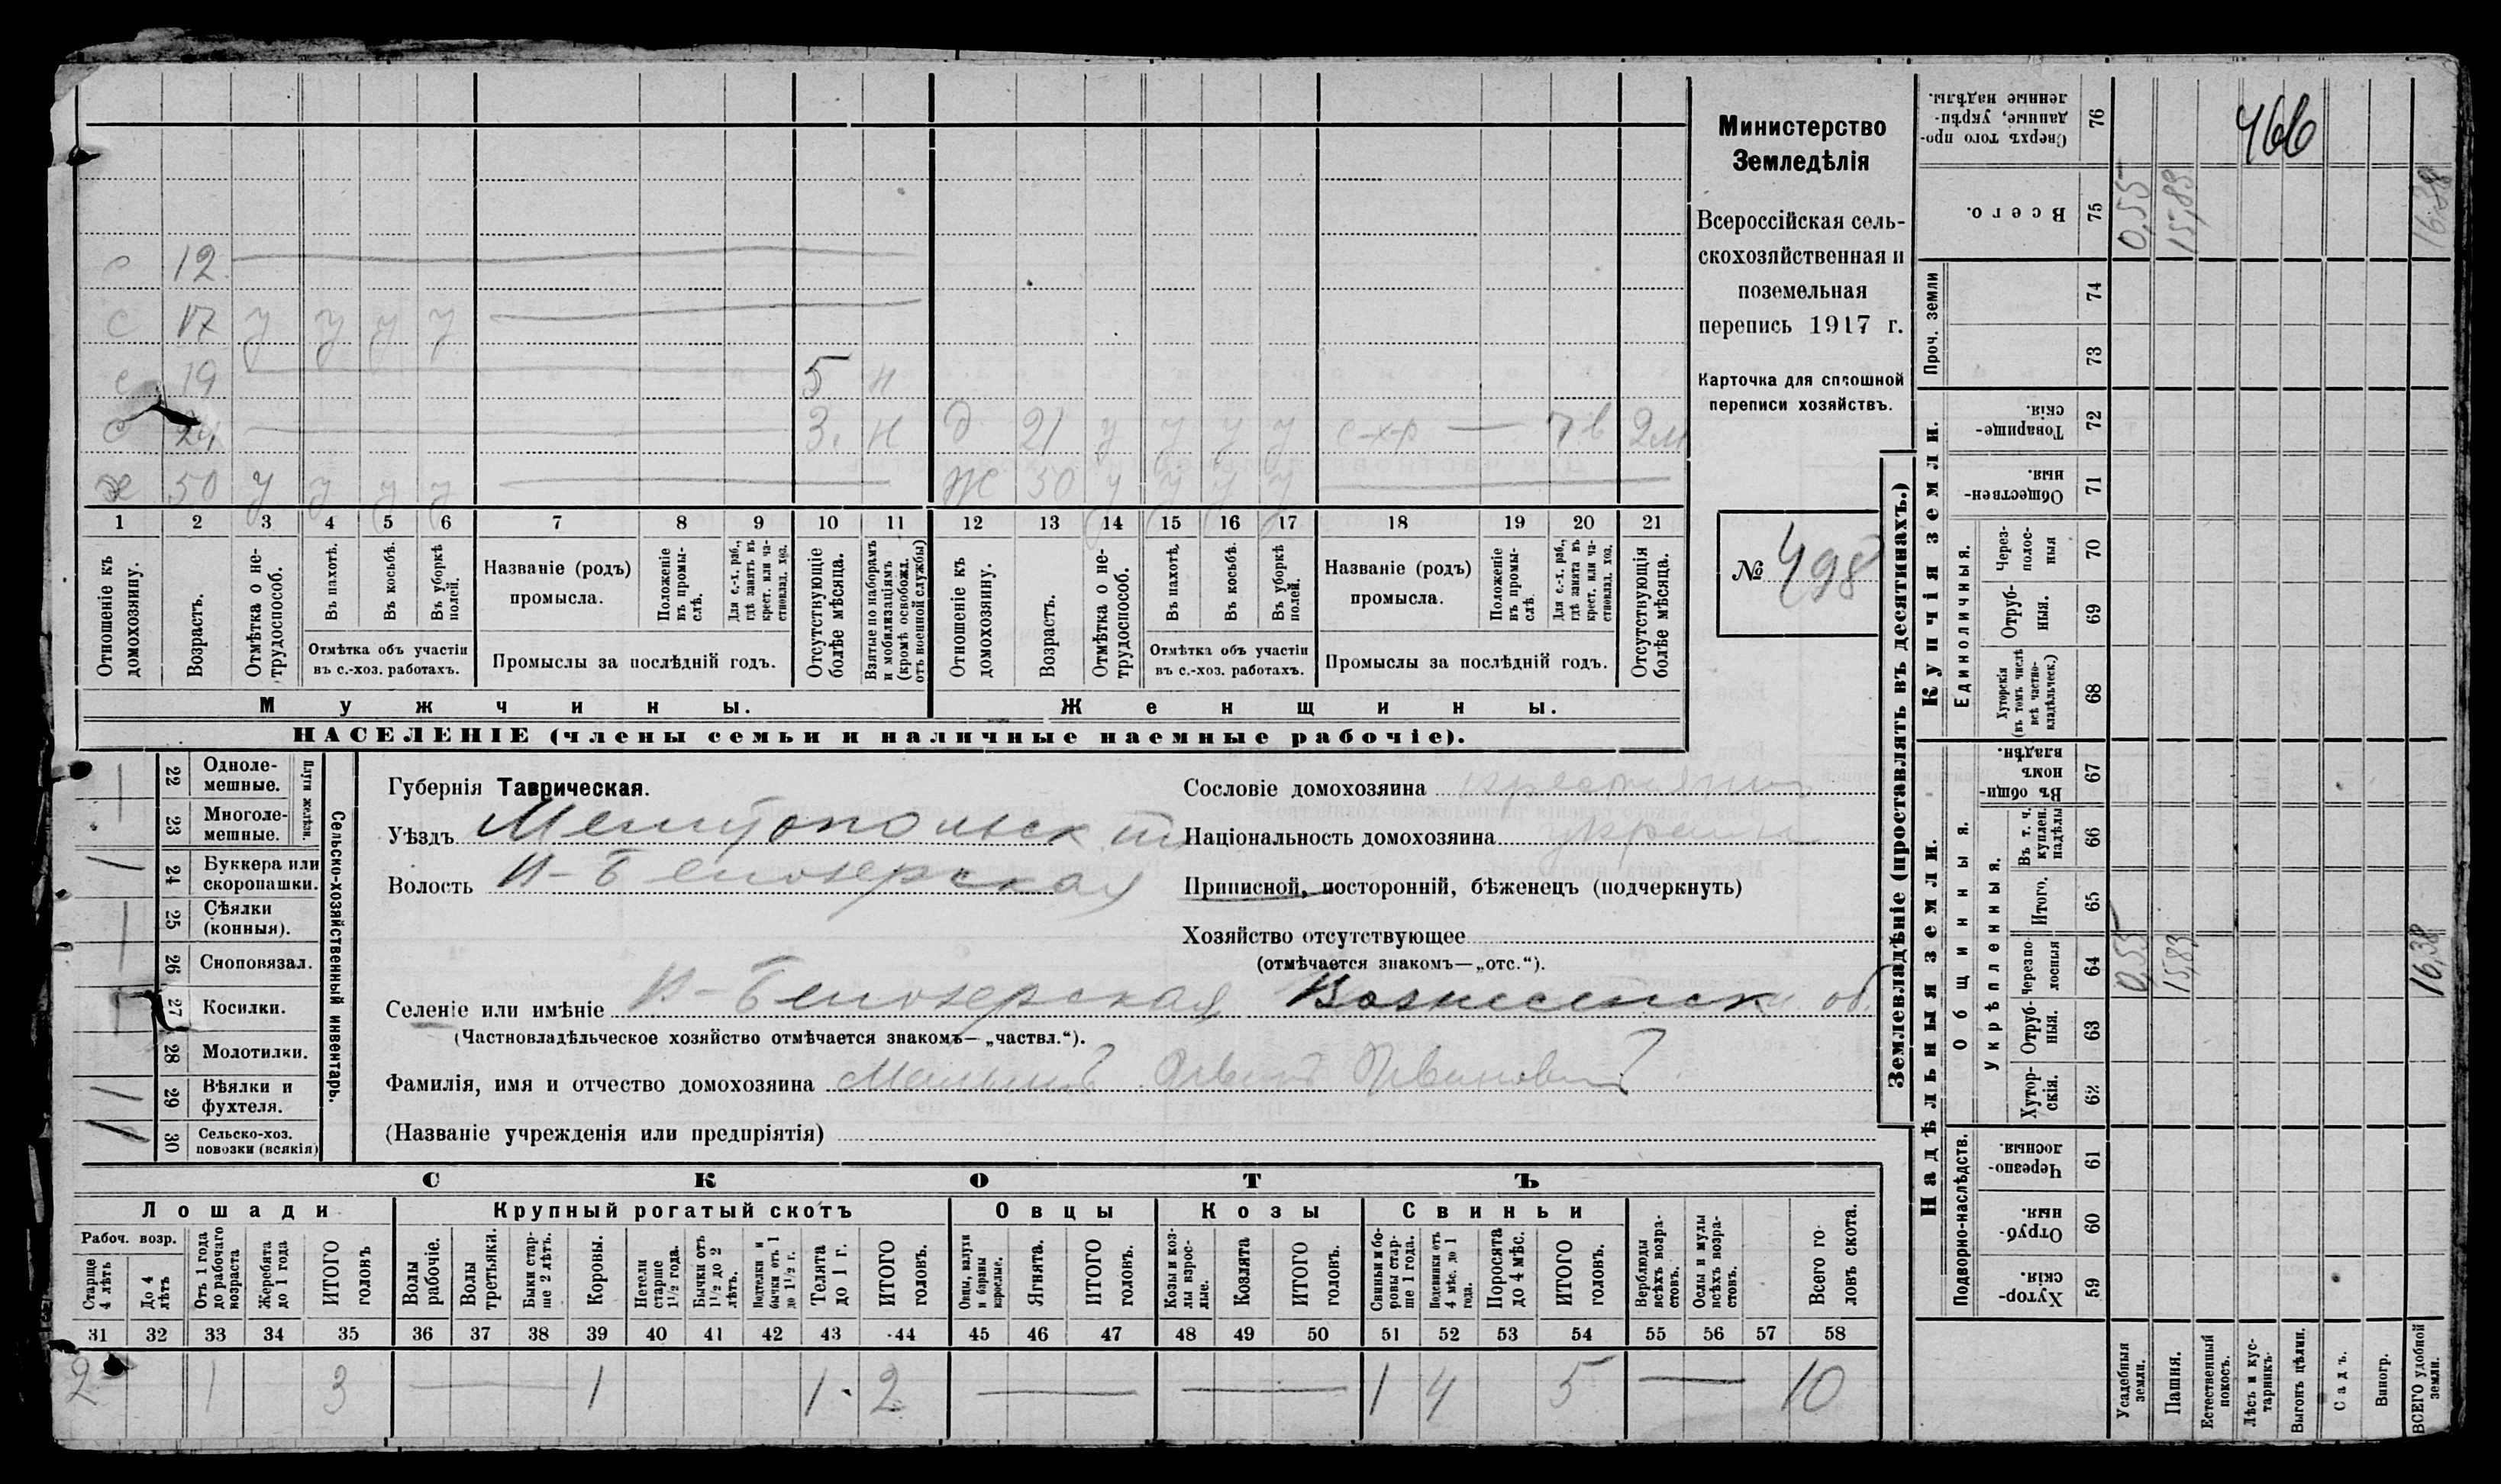 Министерство
Земледѣлія
Всероссійская сель-
скохозяйственная и
поземельная
перепись 1917 г.
Карточка для сплошной
переписи хозяйствъ.
№ 498
с 12
с 17 у у у у
с 19 5 н
с 24 3. н д 21 у у у у с-х-р — 2м
50 у у у у Ж 50 у у у у
1 2 3 4 5 6 7 8 9 10 11 12 13 14 15 16 17 18 19 20 21
Отношеніе къ домохозяину.
Возрастъ.
Отмѣтка о не-трудоспособ.
Въ пахотѣ.
Въ косьбѣ.
Въ уборкѣ полей.
Отмѣтка объ участіи
въ с.-хоз. работахъ.
Названіе (родъ)
промысла.
Положеніе въ промы-слѣ.
Для с.-х. раб., гдѣ занятъ въ крест. или ча-стновлад. хоз.
Промыслы за послѣдній годъ.
Отсутствующіе болѣе мѣсяца.
Взятые по наборамъ и мобилизаціямъ (кромѣ освобожд. отъ военной службы)
Отношеніе къ домохозяину.
Возрастъ.
Отмѣтка о не-трудоспособ.
Въ пахотѣ.
Въ косьбѣ.
Въ уборкѣ полей.
Отмѣтка объ участіи
въ с.-хоз. работахъ.
Названіе (родъ)
промысла.
Положеніе въ промы-слѣ.
Для с.-х. раб., гдѣ занята въ крест. или ча-стновлад. хоз.
Промыслы за послѣдній годъ.
Отсутствующія болѣе мѣсяца.
Мужчины.
Женщины.
НАСЕЛЕНІЕ (члены семьи и наличные наемные рабочіе).
Сельско-хозяйственный инвентарь.
Плуги желѣзн.
22 Одноле-мешные.
23 Многоле-мешные.
24 Буккера или скоропашки.
25 Сѣялки (конныя).
26 Сноповязал.
27 Косилки.
28 Молотилки.
29 Вѣялки и фухтеля.
30 Сельско-хоз. повозки (всякія)
Губернія Таврическая.
Уѣздъ Мелитопольск
Волость Н-Белозерская
Селеніе или имѣніе Н-Белозерская Вознесенск об.
(Частновладѣльческое хозяйство отмѣчается знакомъ— „частвл.“).
Фамилія, имя и отчество домохозяина Ивановичъ
(Названіе учрежденія или предпріятія)
Сословіе домохозяина крестьянинъ
Національность домохозяина украин
Приписной, посторонній, бѣженецъ (подчеркнуть)
Хозяйство отсутствующее
(отмѣчается знакомъ—„отс.“).
СКОТЪ
Лошади Крупный рогатый скотъ Овцы Козы Свиньи
Рабоч. возр.
Старше 4 лѣтъ
До 4 лѣтъ
Отъ 1 года до рабочаго возраста
Жеребята до 1 года
ИТОГО головъ
Волы рабочіе.
Волы третьяки.
Быки стар-ше 2 лѣтъ.
Коровы.
Нетели старше 1½ года.
Бычки отъ 1½ до 2 лѣтъ.
Подтелки и бычки отъ 1 до 1½ г.
Телята до 1 г.
ИТОГО головъ.
Овцы, валухи и бараны взрослые.
Ягнята.
ИТОГО головъ.
Козы и коз-лы взрос-лые.
Козлята
ИТОГО головъ.
Свиньи и бо-ровы стар-ше 1 года.
Подсвинки отъ 4 мѣс. до 1 года.
Поросята до 4 мѣс.
ИТОГО головъ.
Верблюды всѣхъ возра-стовъ.
Ослы и мулы всѣхъ возра-стовъ.
Всего го-ловъ скота.
31 32 33 34 35 36 37 38 39 40 41 42 43 44 45 46 47 48 49 50 51 52 53 54 55 56 57 58
2 1 3 — 1 1 2 — — 1 4 5 — 10
Землевладѣніе (проставлять въ десятинахъ.)
Купчія земли.
Надѣльныя земли.
466
Сверхъ того про-данные, укрѣп-ленные надѣлы. 76
Всего. 75 0,55 15,83 16.38
Проч. земли
74
73
Товарище-скія. 72
Обществен-ныя. 71
Единоличныя.
Через-полос-ныя 70
Отруб-ныя. 69
Хуторскія (въ томъ числѣ всѣ частно-владѣльческ.) 68
Общинныя.
Въ общин-номъ владѣн. 67
Укрѣпленныя.
Въ т. ч. куплен. надѣлы 66
Итого. 65
Черезпо-лосныя 64 0,55 15,83 16,38
Отруб-ныя. 63
Хутор-скія. 62
Подворно-наслѣдств.
Черезпо-лосныя 61
Отруб-ныя. 60
Хутор-скія. 59
Усадебныя земли.
Пашня.
Естественный покосъ.
Лѣсъ и кус-тарникъ.
Выгонъ цѣлин.
Садъ.
Виногр.
ВСЕГО удобной земли.